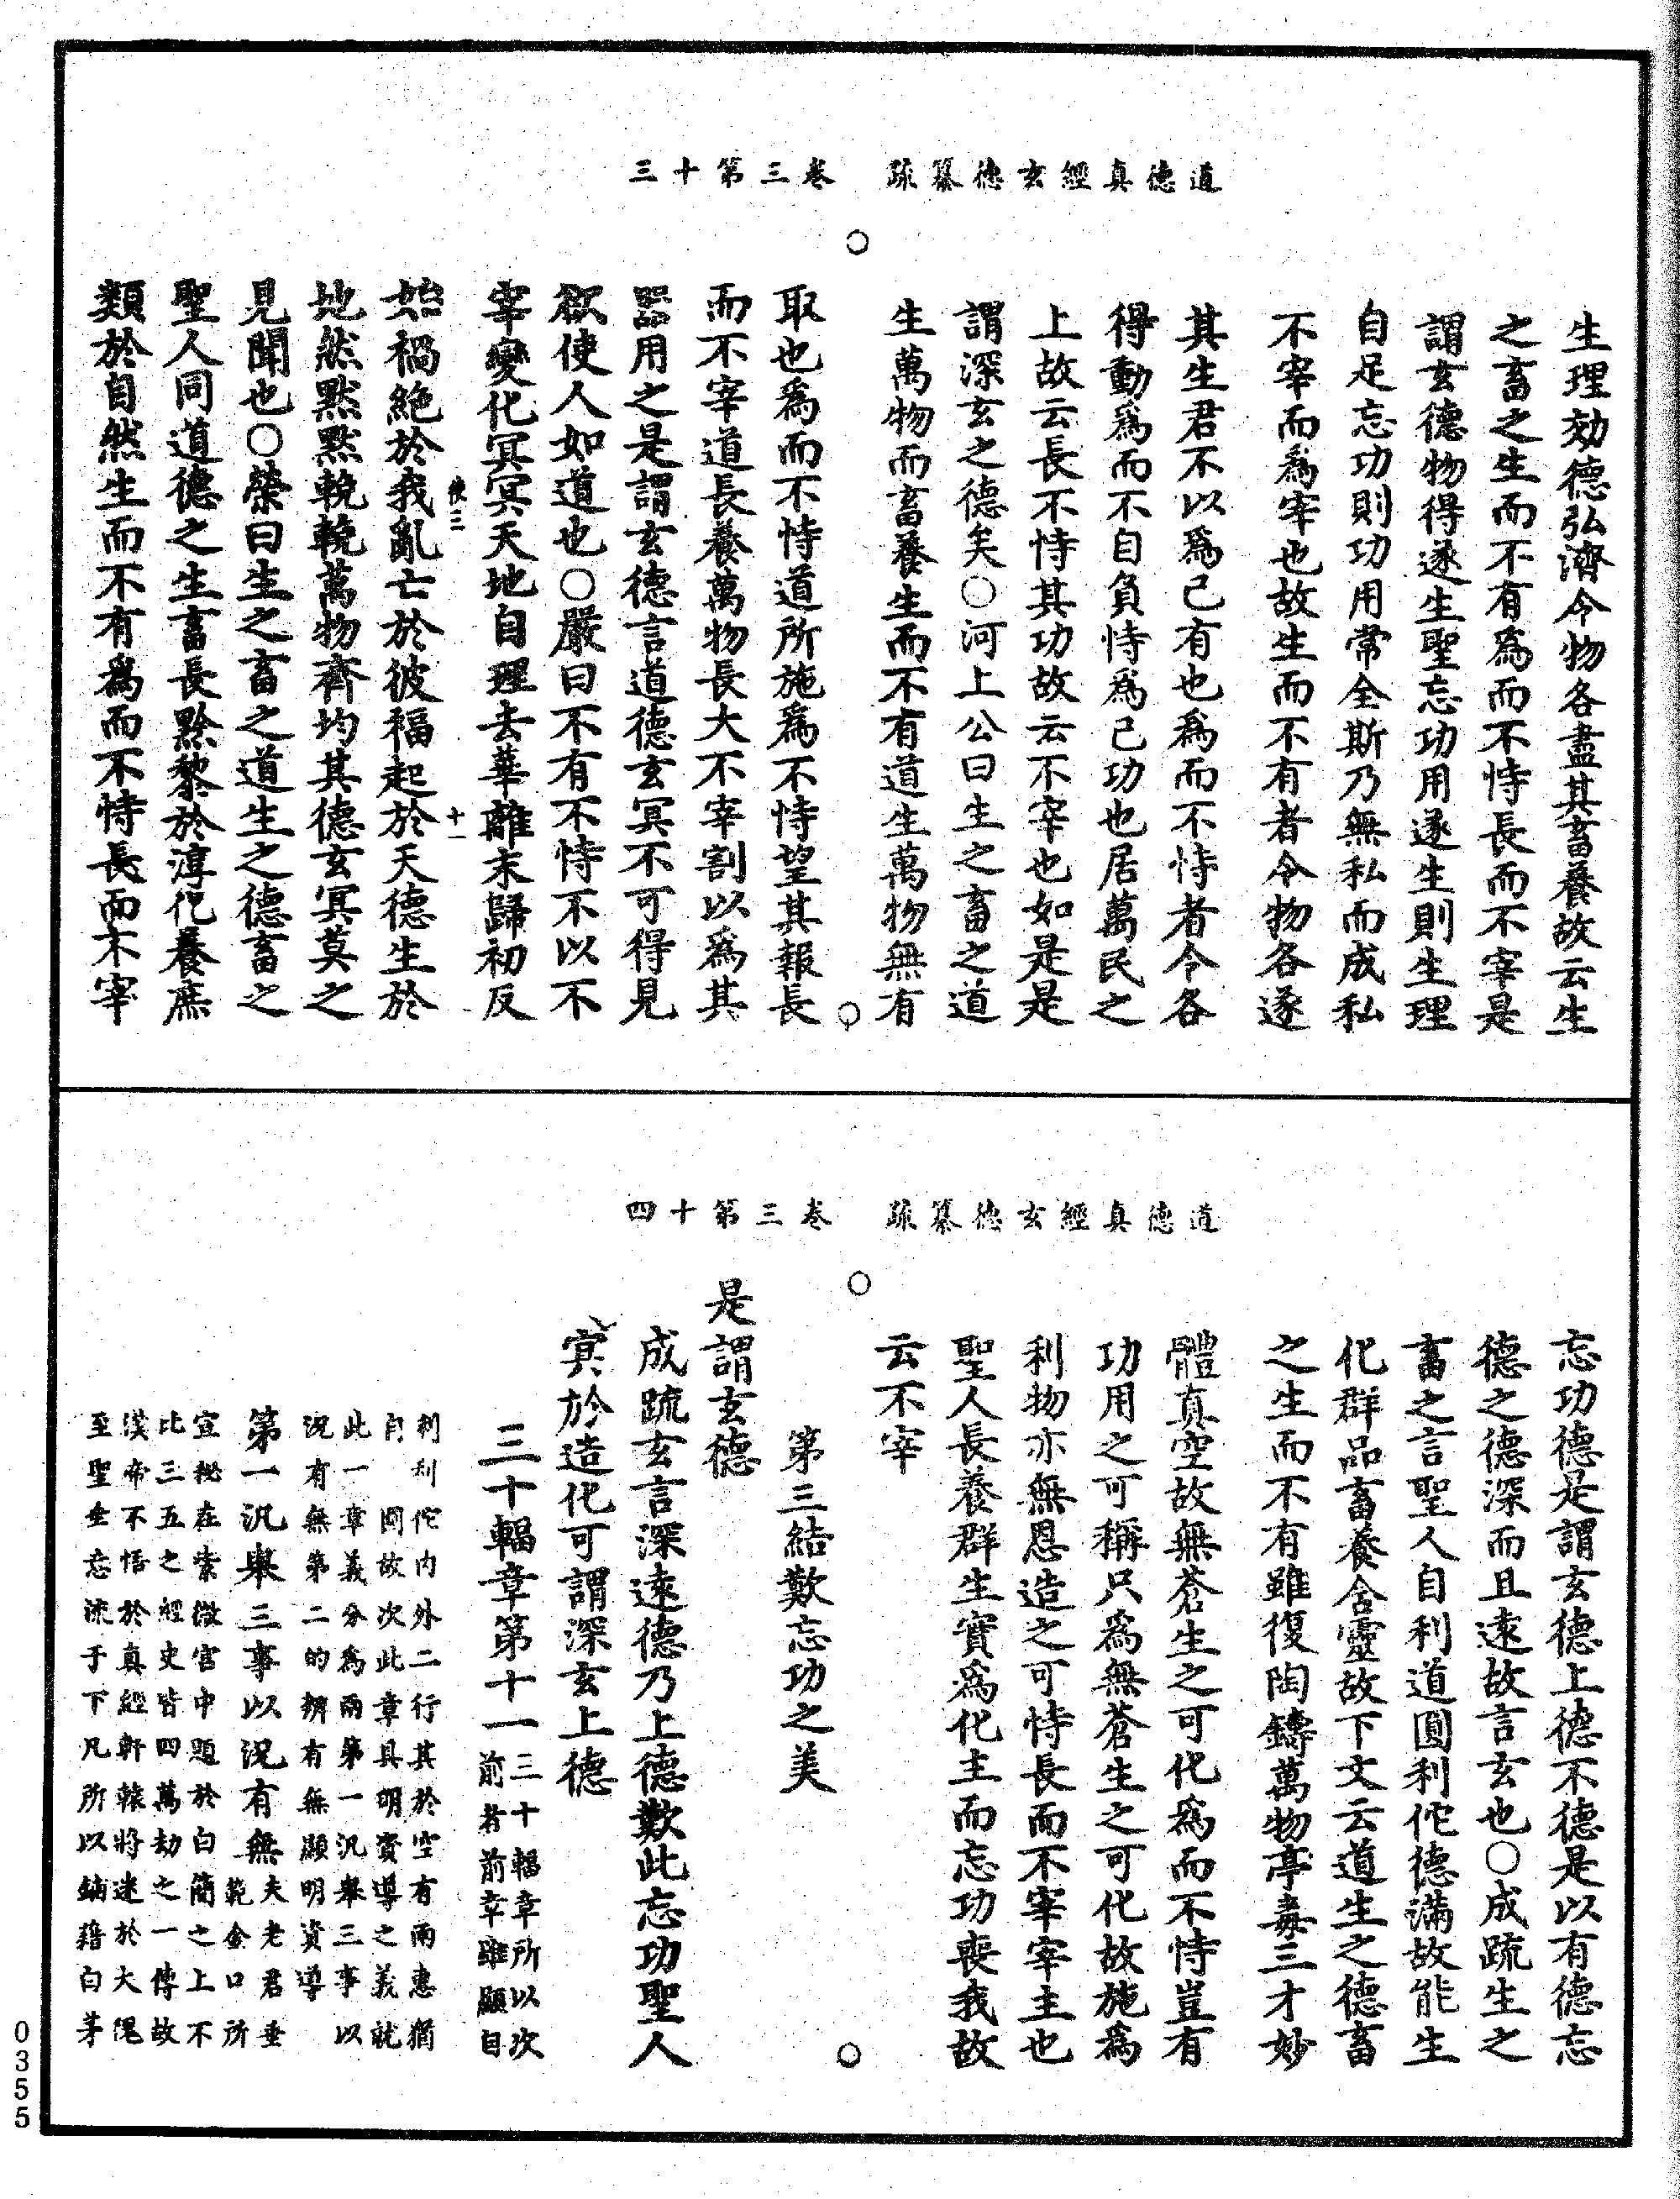 道德真經玄德纂疏　卷三第十三
生理効德弘濟令物各盡其畜養故云生
之畜之生而不有為而不恃長而不宰是
謂玄德物得遂生聖忘功用遂生則生理
自足忘功則功用常全斯乃無私而成私
不宰而為宰也故生而不有者令物各遂
其生君不以為己有也為而不恃者令各
得動為而不自負恃為己功也居萬民之
上故云長不恃其功故云不宰也如是是
謂深玄之德矣○河上公曰生之畜之道
生萬物而畜養生而不有道生萬物無有
取也為而不恃道所施為不恃望其報長
而不宰道長養萬物長大不宰割以為其
器用之是謂玄德言道德玄冥不可得見
欲使人如道也○嚴曰不有不恃不以不
宰變化冥冥天地自理去華離末歸初反
十一
始禍絕於我亂亡於彼福起於天德生於
地然默默輓輓萬物齊均其德玄冥莫之
見聞也○榮曰生之畜之道生之德畜之
聖人同道德之生畜長黔黎於淳化養庶
類於自然生而不有為而不恃長而不宰
道德真經玄德纂疏　卷三第十四
忘功德是謂玄德上德不德是以有德忘
德之德深而且遠故言玄也○成疏生之
畜之言聖人自利道圓利佗德滿故能生
化群品畜養含靈故下文云道生之德畜
之生而不有雖復陶鑄萬物亭毒三才妙
體真空故無蒼生之可化為而不恃豈有
功用之可稱只為無蒼生之可化故施為
利物亦無恩造之可恃長而不宰宰主也
聖人長養群生實為化主而忘功喪我故
云不宰
第三結歎忘功之美
是謂玄德
成疏玄言深遠德乃上德歎此忘功聖人
冥於造化可謂深玄上德
三十輻章第十一三十輻章所以次
前者前章雖顯自
利利佗內外二行其於空有兩惠猶
自　故次此章具明資導之義就
此一章義分為兩第一汎舉三事以
況有無第二的辯有無顯明資導
第一汎舉三事以況有無夫老君垂
範金口所
宣秘在紫微宮中題於白簡之上不
比三五之經史皆四萬劫之一傳故
漢帝不悟於真經軒轅將迷於大隗
至聖垂忘流于下凡所以鋪藉白茅
0355